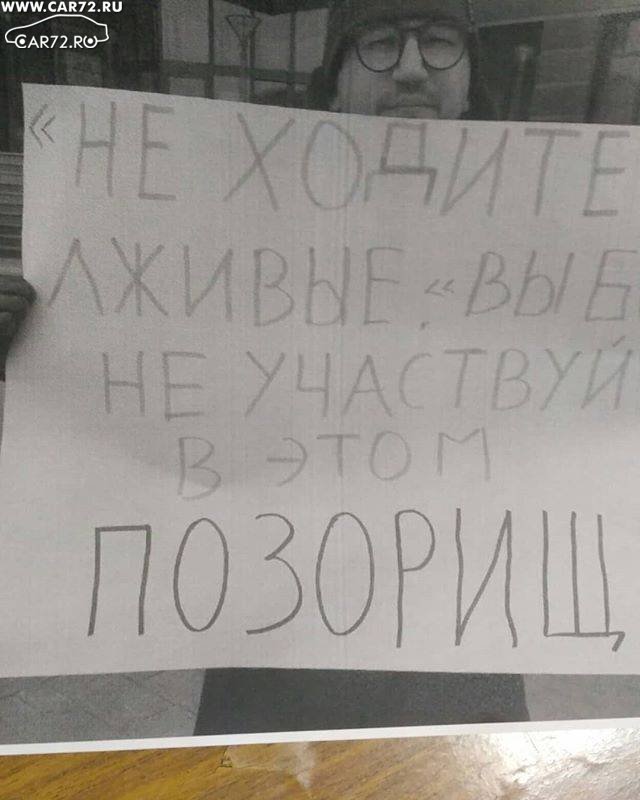 WWW.CAR72.RU
CAR72.RU
«НЕ ХОДИТЕ
ЛЖИВЫЕ «ВЫБ
НЕ УЧАСТВУЙ
В ЭТОМ
ПОЗОРИЩ